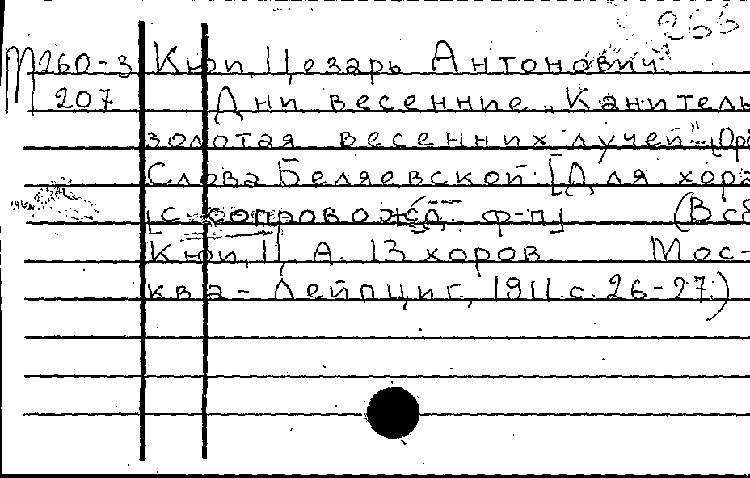 266
М260-3 Кюи, Цезарь Антонович
207 Дни весенние. "Канитель
золотая весенних лучей". [Ор
Слова Беляевской. [Для хора
[с сопровожд. ф-п] (В сб
Кюи, Ц. А. 13 хоров. Мос-
ква - Лейпциг, 1911 с. 26-27.)